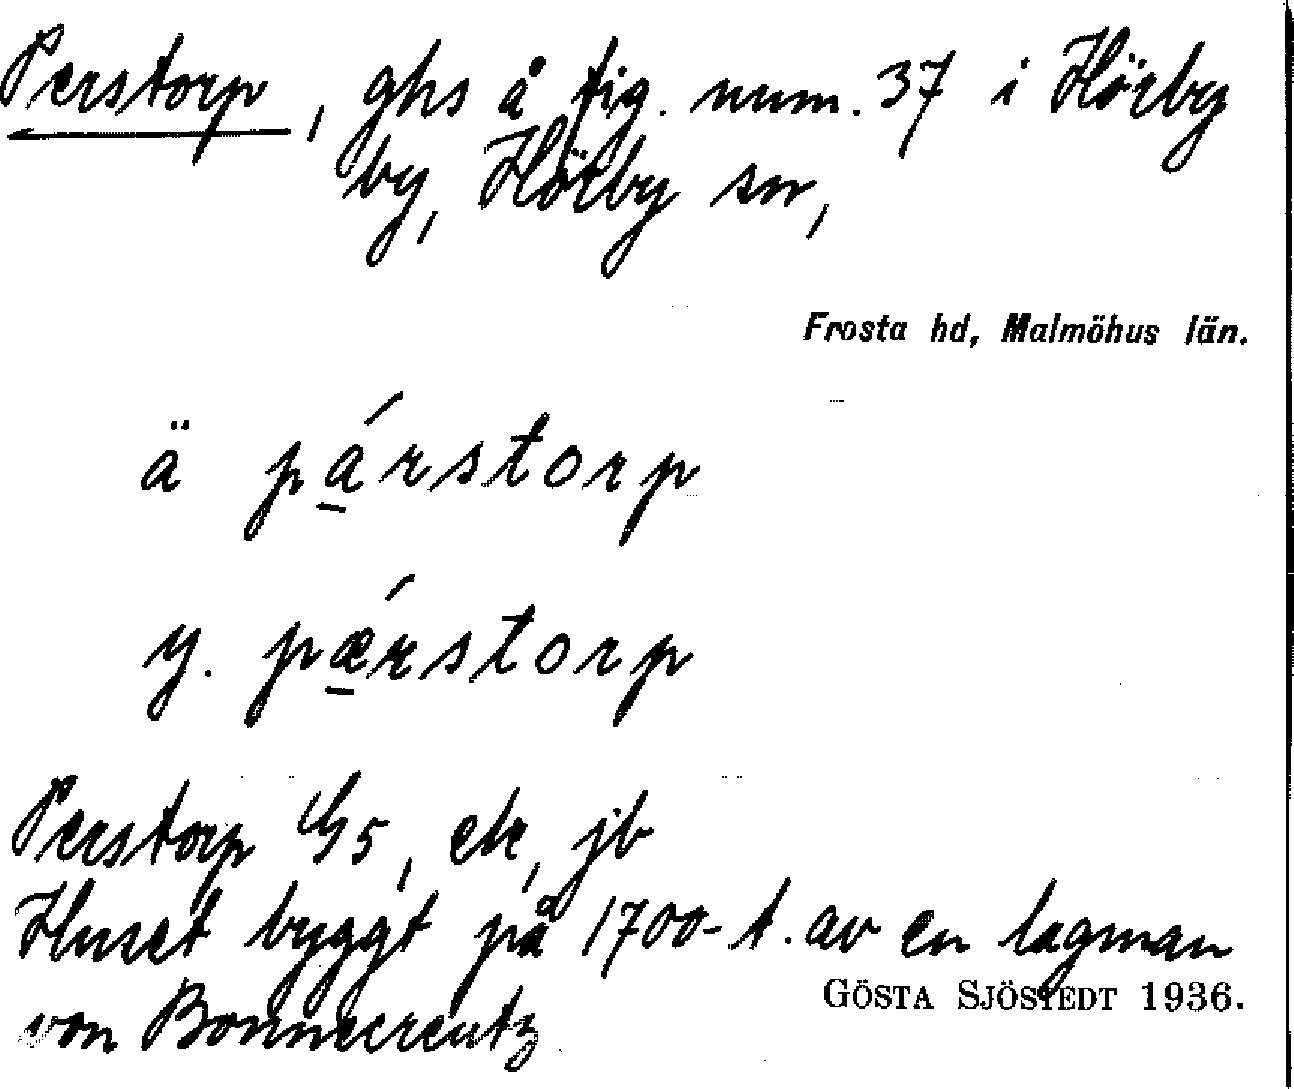 Perstorp, ghs å fig. num. 37 i Hörby
by, Hörby sn,
Frosta hd, Malmöhus län.
ä pá̱rstorp
y. pǽ̱rstorp
Perstorp GS, ek, jb
Huset byggt på 1700-t. av en lagman
von Bonnecreutz
GÖSTA SJÖSTEDT 1936.